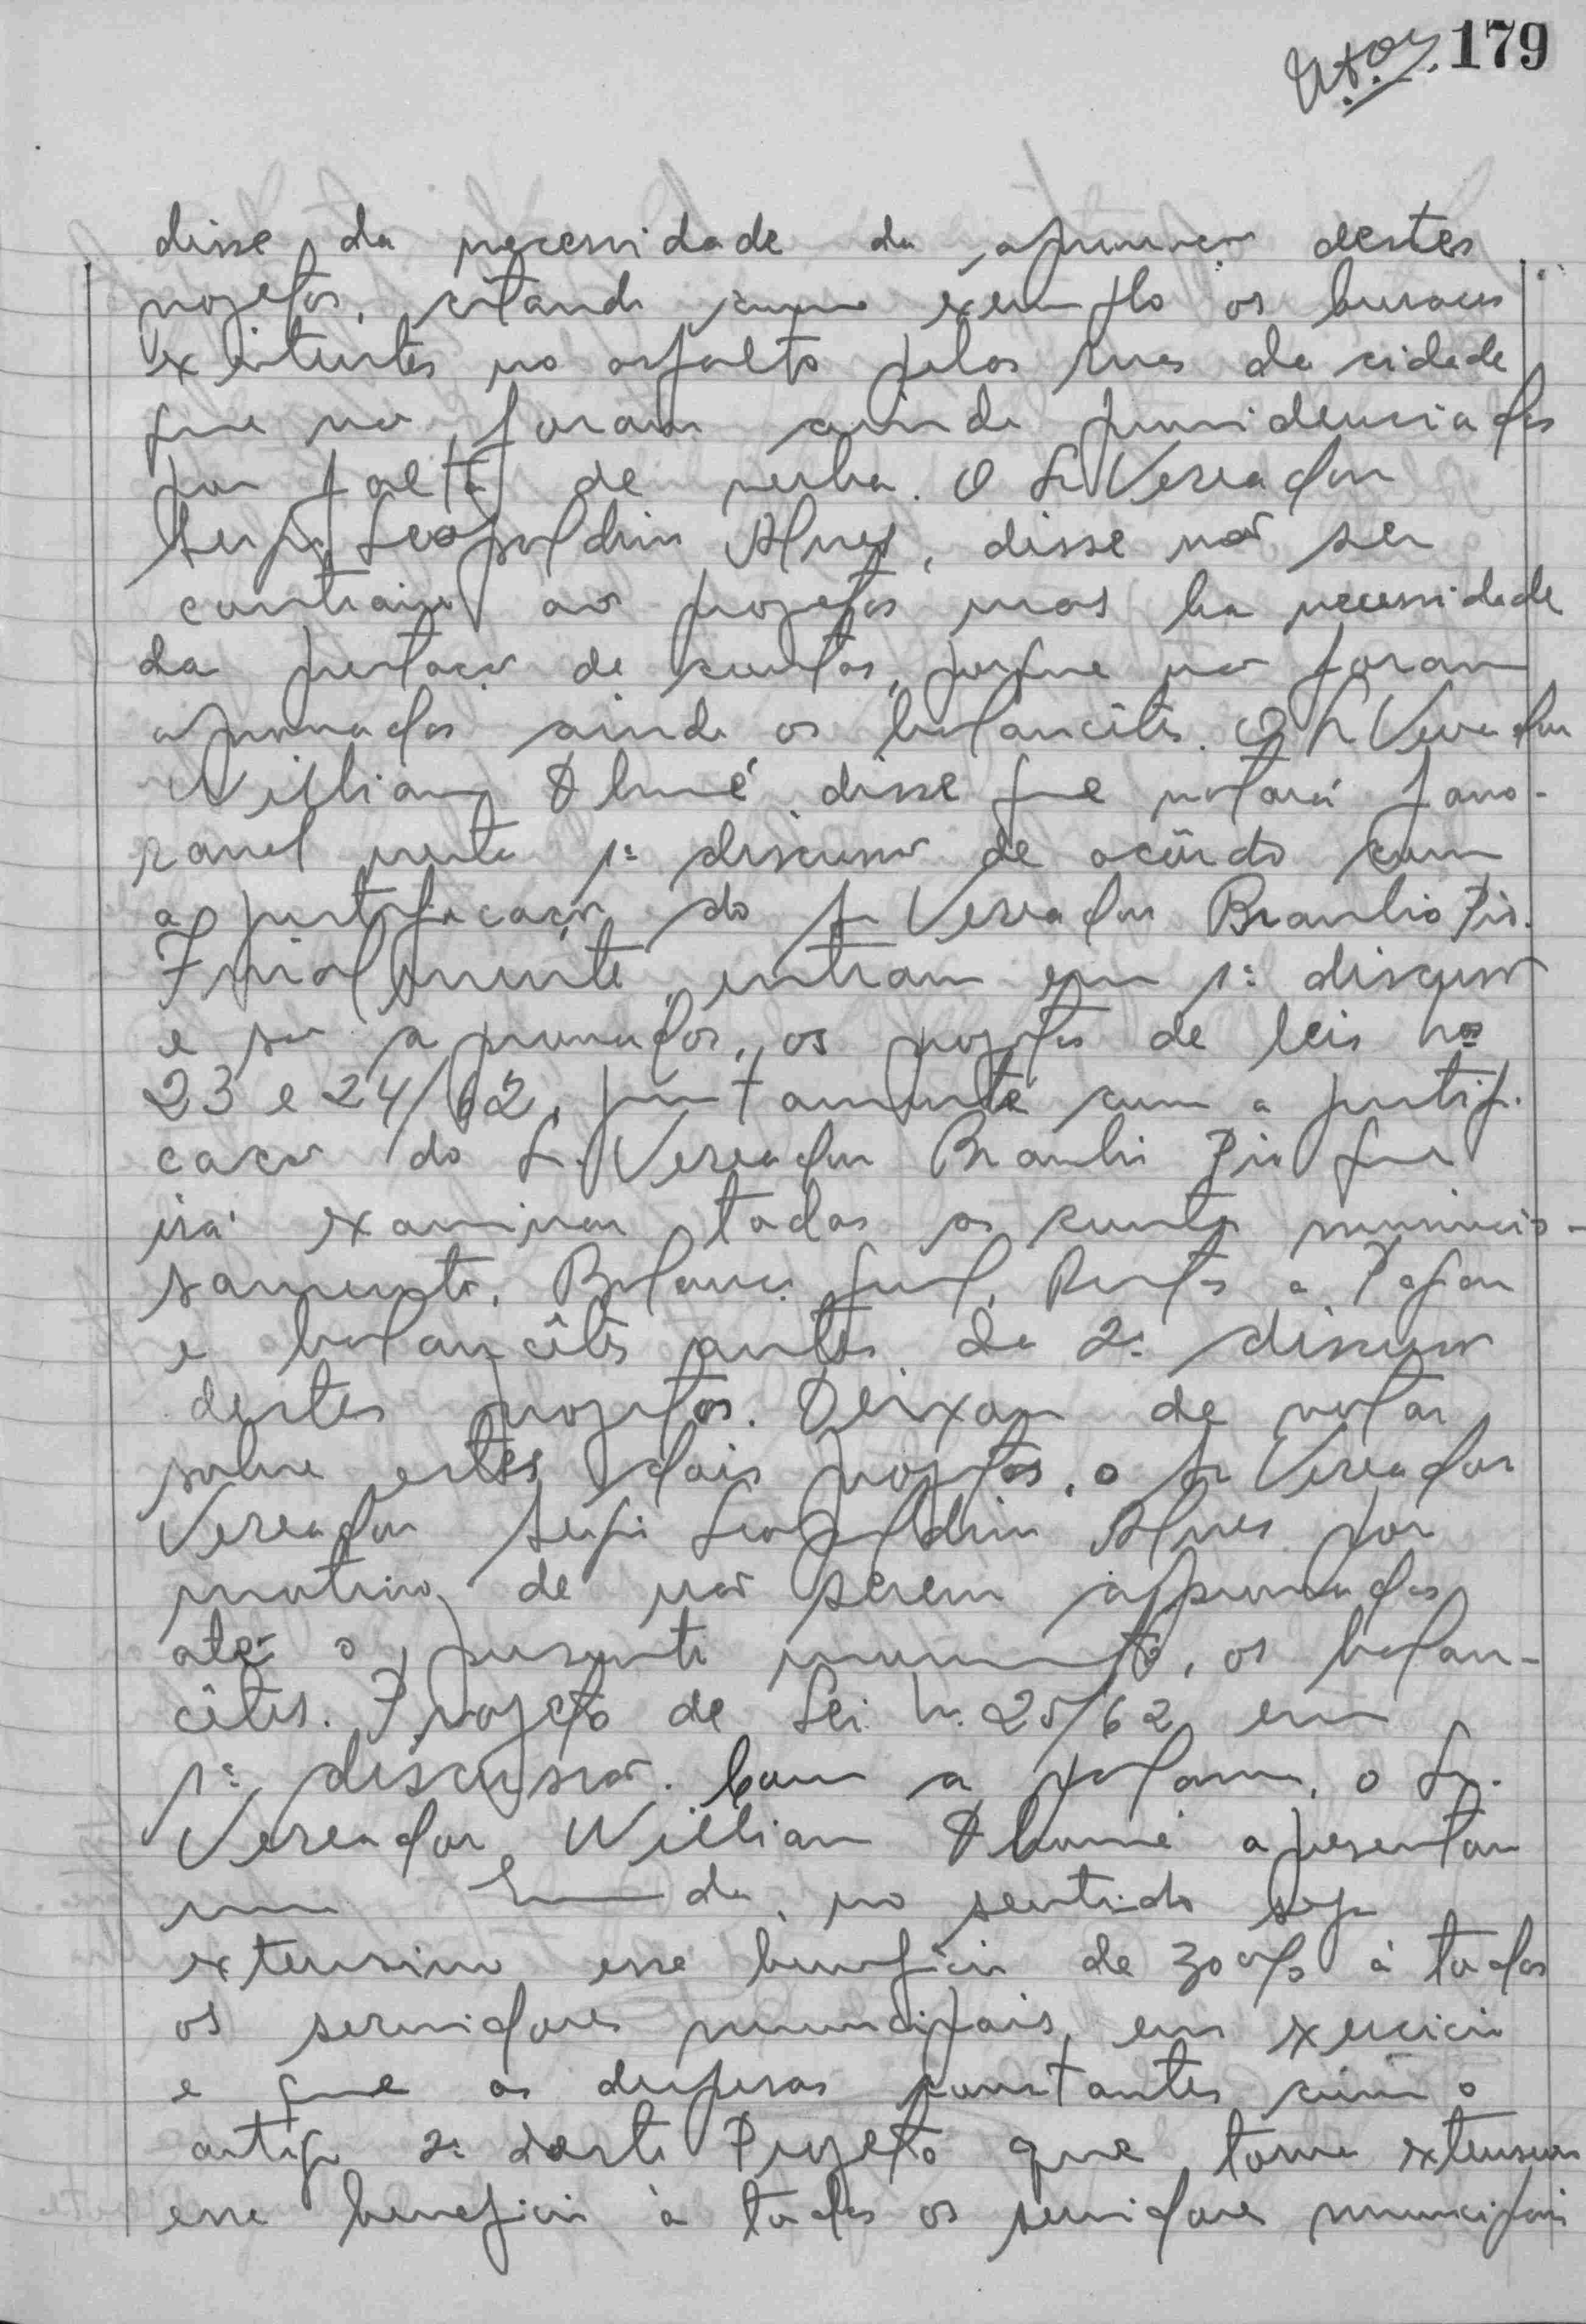 179
disse da necessidade da aprovação destes
projetos, citando como exemplo os buracos
existentes no asfalto pelas ruas da cidade
que não foram ainda providenciados
por falta de verba. O Sr Vereador
Sergio Leopoldino Alves, disse não ser
contrario aos projetos mas ha necessidade
da prestação de contas, porque não foram
aprovados ainda os balancêtes. O Sr Vereador
William disse que votará favo-
ravel nesta 1ª discussão de acôrdo com
a justificação do Sr Vereador Braulio Pio.
Finalmente, entram em 1ª discussão
e são aprovados, os projetos de leis nos
23 e 24/62, juntamente com a justifi-
cação do Sr. Vereador Braulio Pio que
irá examinar todas as contas minucio-
samente, Balanço Geral, Restos a Pagar
e balancêtes antes da 2ª discussão
destes projetos. Deixou de votar
sobre estes dois projetos, o Sr Vereador
Vereador Sergio Leopoldino Alves por
motivo de não serem aprovados
até o presente momento, os balan-
cêtes. Projeto de Lei n. 25/62 em
1ª discussão. Com a palavra, o Sr.
Vereador William apresentou
uma Emenda, no sentido seja
extensivo esse beneficio de 30% à todos
os servidores municipais, em exercicio
e que as despesas constantes com o
artigo 2º deste Projeto que torne extensivo
esse beneficio à todos os servidores municipais